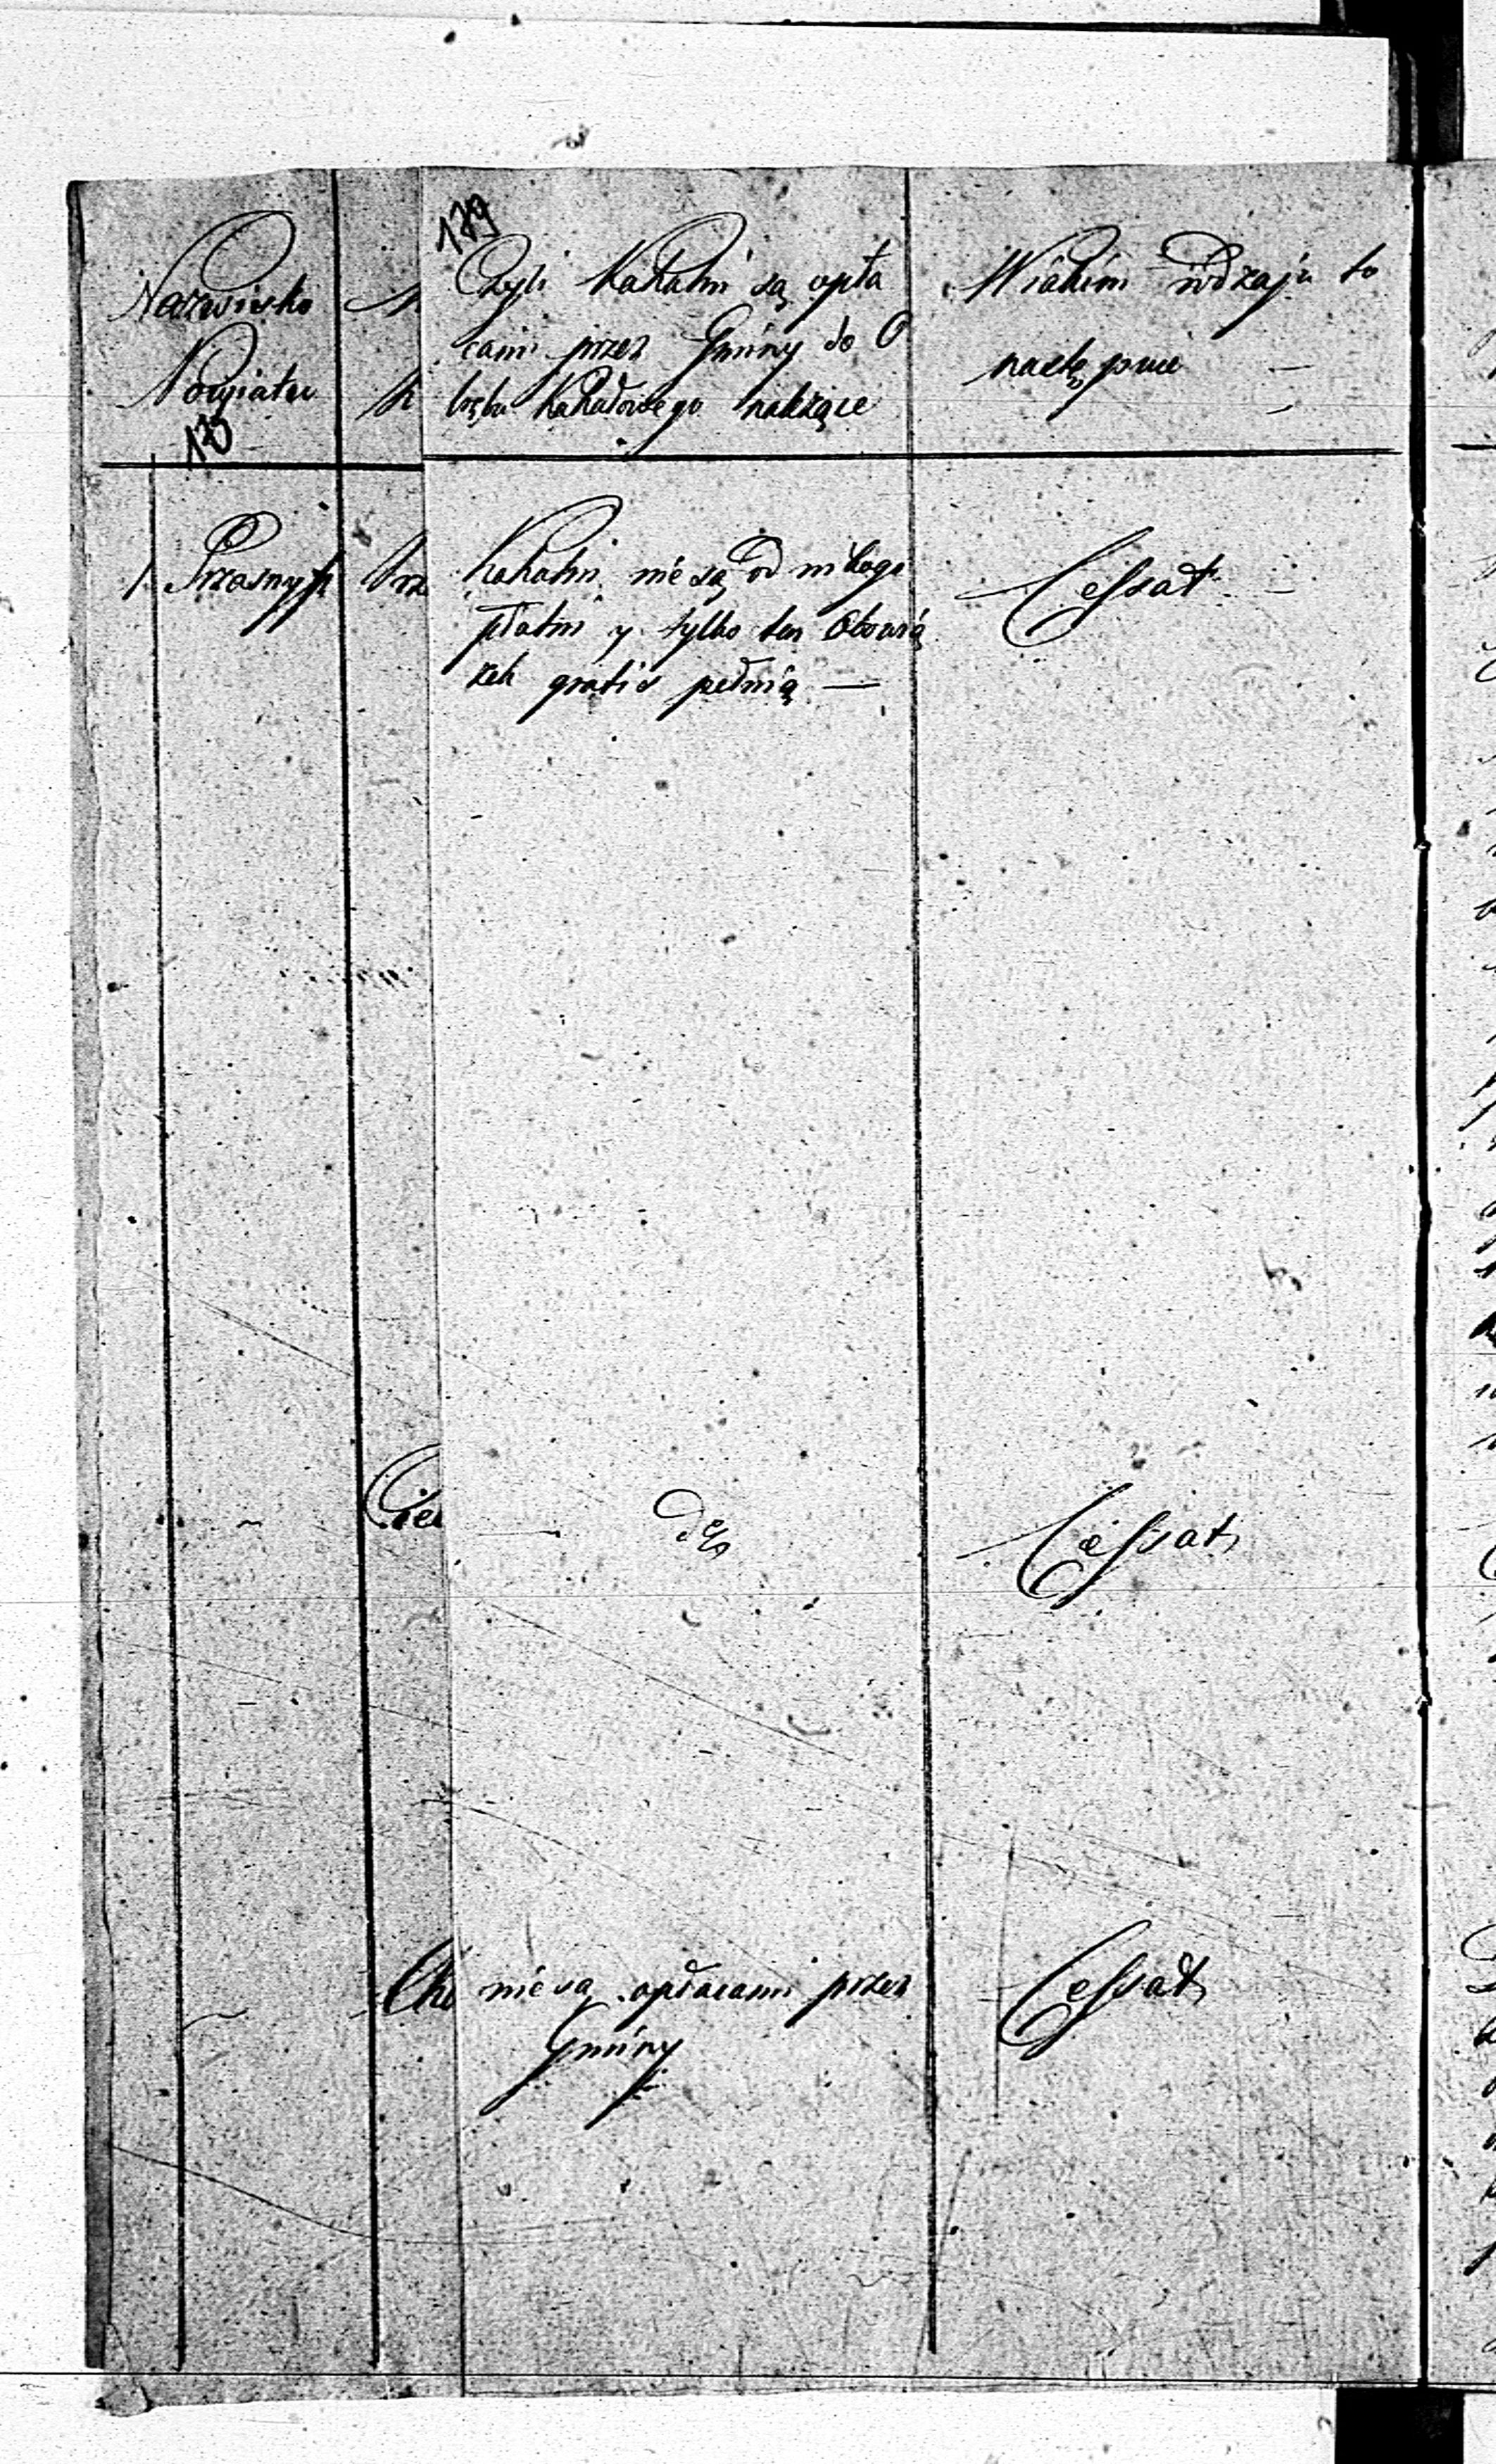 179
Nazwisko
Powiatu
173
Czyli Kahalni są opła
cani przez Gminy do O
kręgu Kahalowego należące
W iakim rodzaju to
następuie
1. Przasnysk
Prza
Kahalni nie są od nikogo
płatni y tylko ten Obowią
zek gratis pełnią —
Cessat
Ciec
Cessat
Cho
nie są opłacani przez
Gminy
Cessat